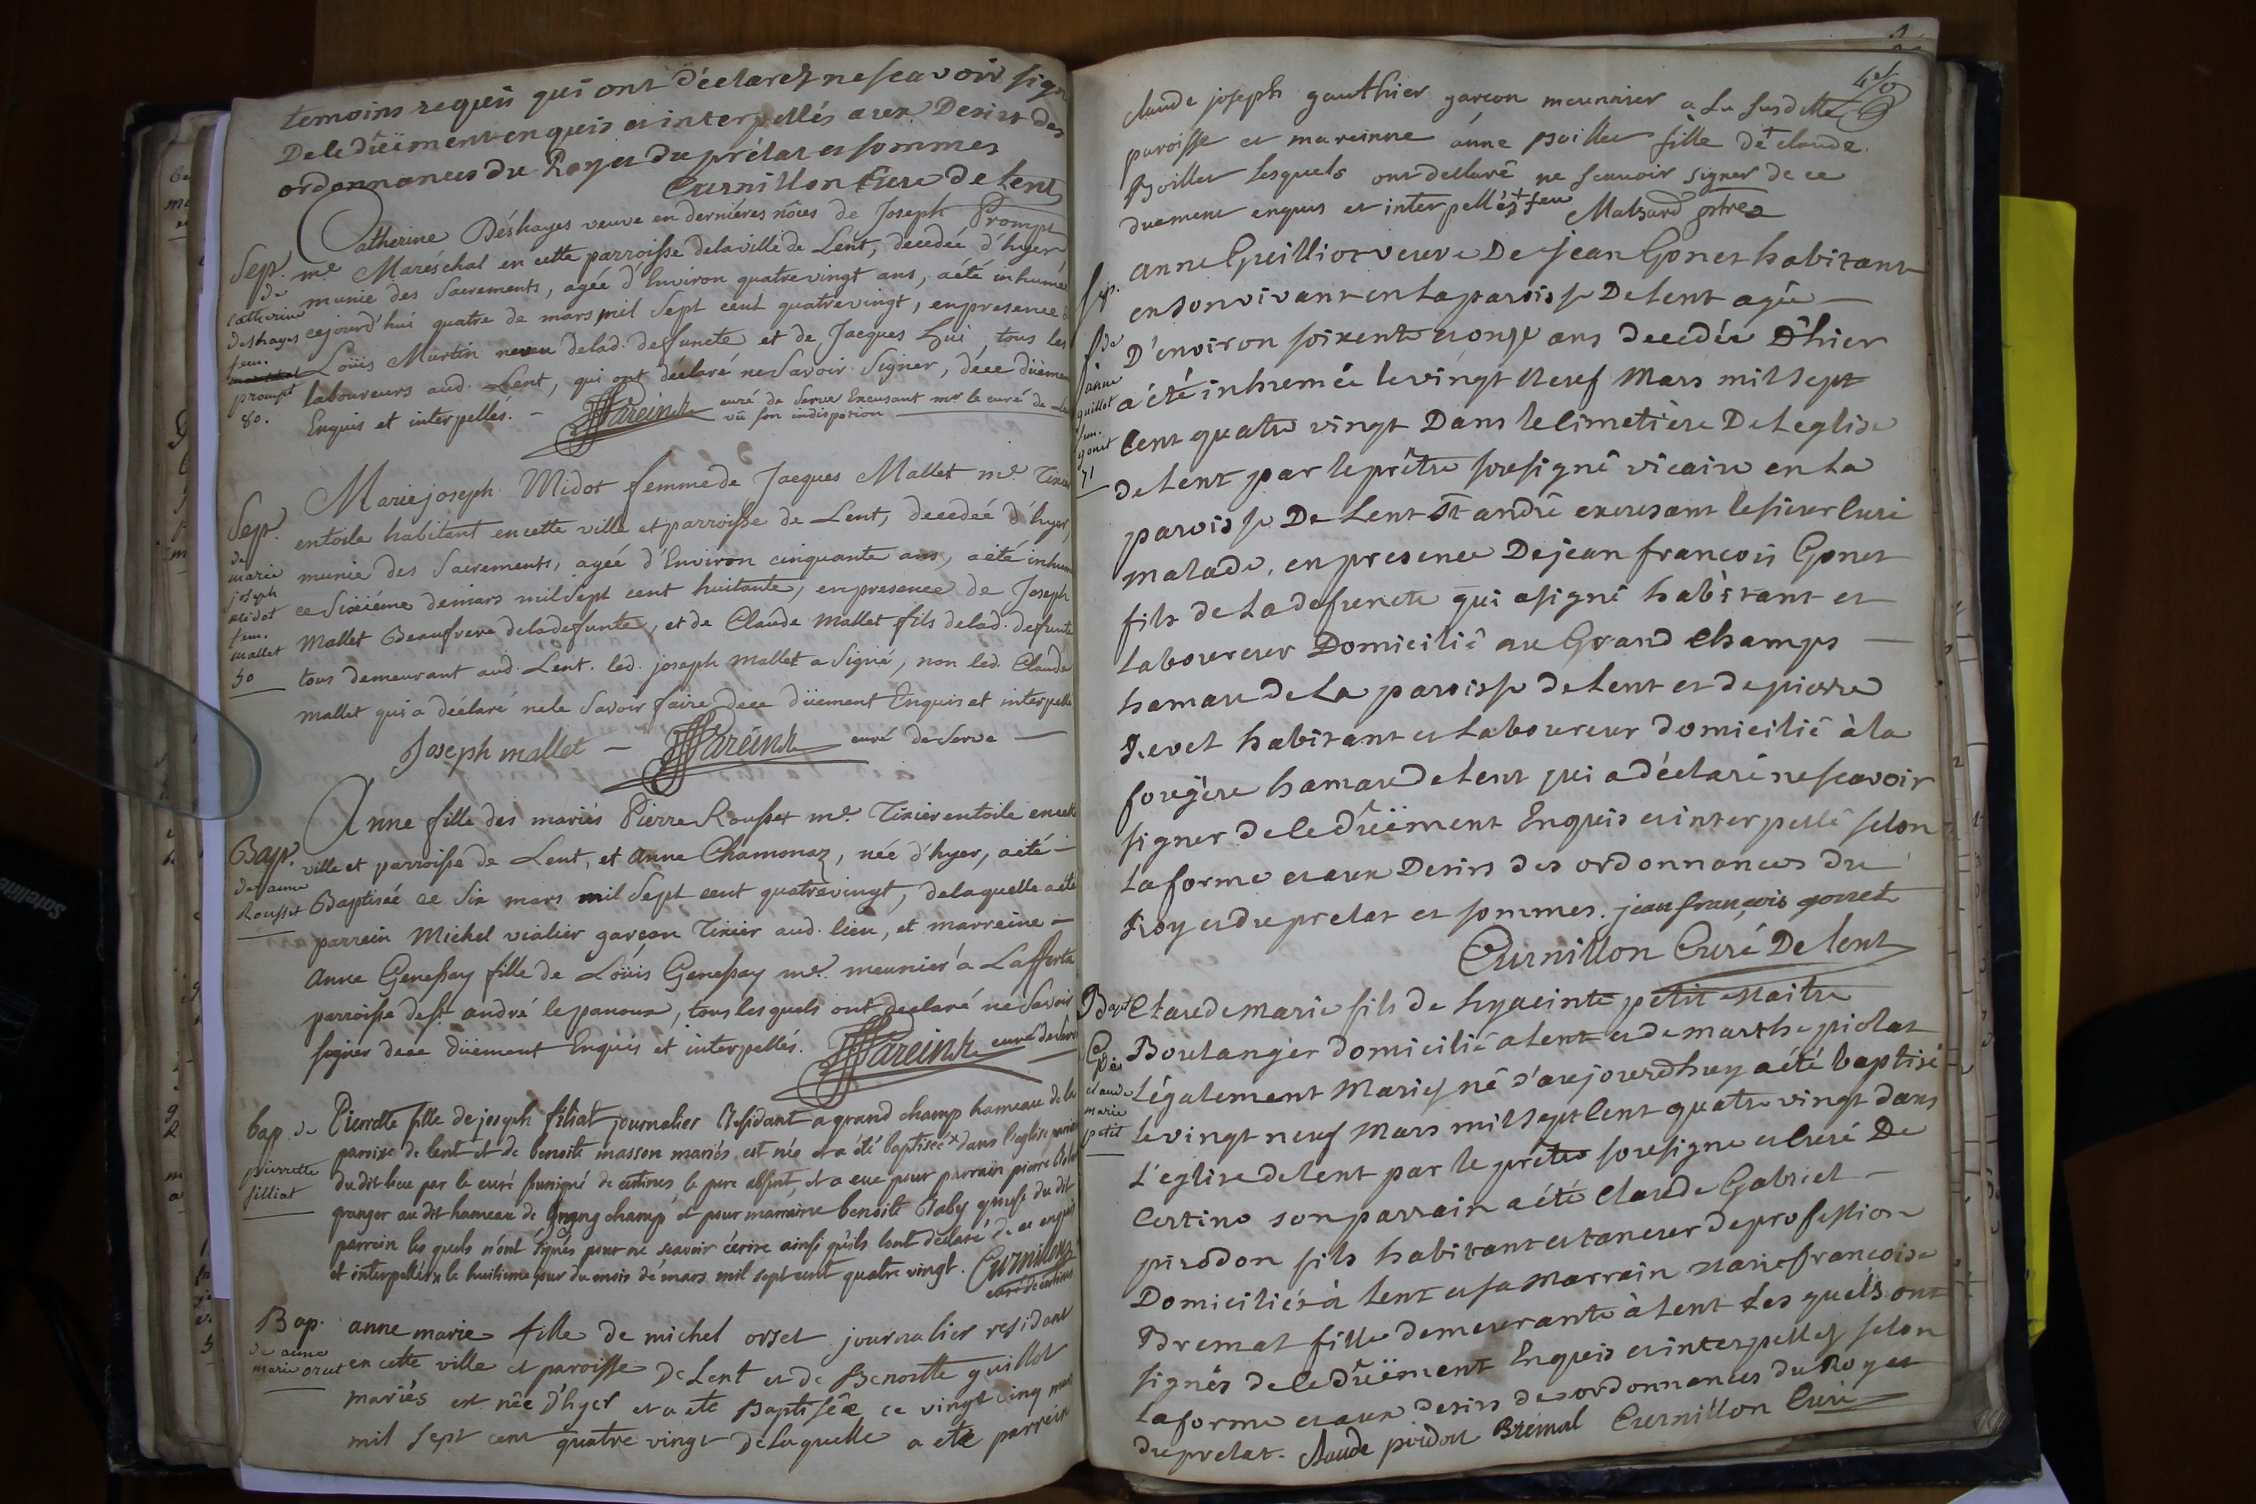 temoins requis qui ont déclarez ne scavoir sign
De le dûement enquis et interpellés aux Desirs des
ordonnances du Roy et du prélat et sommes
Curnillon Curé de lent
Catherine Déshayes veuve en derniéres nôces de Joseph Prompt
Sep. me Maréschal en cette parroisse de la ville de Lent, decedée d'hyer
de catherine munie des Sacrements, agée d'Environ quatrevingt ans, a été inhumé
deshayes cejourd'hui quatre de mars mil Sept cent quatrevingt, en presence
fem. Loüis Martin neveu delad. defuncte et de Jacques Lui, tous les
prompt laboureurs aud. Lent, qui ont déclaré ne Savoir Signer, déce düeme
80. Enquis et interpellés. - Fareinck curé de Serva Excusant mr le curé de
vû son indispotion
Marie joseph Midot femme de Jacques Mallet me. Tixie
Sep. entoile habitant en cette ville et parroisse de Lent, decedée d'hyer,
de marie munie des Sacrements, agée d'Environ cinquante ans, a été inhum
joseph midot ce Sixiéme de mars mil Sept cent huitante, en presence de Joseph
fem. mallet Mallet Beaufrere deladefunte, et de Claude Mallet fils delad. defunte
50 tous demeurant aud. Lent. led. joseph Mallet a Signé, non led. Claude
Mallet qui a déclaré ne le Savoir faire dece düement Enquis et interpellé
Joseph mallet - Fareinck curé de Serva
Anne fille des mariés Pierre Rousset me. Tixier entoile en cette
Bap. ville et parroisse de Lent, et Anne Chamonaz, née d'hyer, a été -
de anne Rousset Baptisée ce Six mars mil Sept cent quatrevingt, de laquelle a été
parrein Michel vialier garçon Tixier aud. lieu, et marreine -
Anne Genessay fille de Loüis Genessay me. meunier a Lafferta
parroisse de st. andré le panoux, tous lesquels ont declaré ne Savoir
signer dece düement Enquis et interpellés. Fareinck curé de Serva
bap. de Pierrette fille de joseph filiat journalier Residant a grand champ hameau de la
pierrette paroisse de lent et de benoite masson mariés est née et a été baptiseé x dans l'eglise
filliat du dit lieu par le curé soussigné de certines le pere absent, et a eue pour parrain pierre
granger au dit hameau de grang champ et pour marraine benoite Baby epouse du dit
parrein les quels n'ont signés pour ne scavoir écrire ainsi qu'ils l'ont déclaré de ce enquis
et interpellés x le huitieme jour du mois de mars mil sept cent quatre vingt. Curnillon
curé de certines
Bap. anne marie fille de michel orset journalier residant
de anne marie orset en cette ville et paroisse De Lent et de Benoitte guillot
mariés est née D'hyer et a ete Baptisée ce vingt cinq mars
mil sept cent quatre vingt De Laquelle a ete parrein
4e
claude joseph gauthier garçon meunier a La susditte
paroisse et mareinne anne poillet fille de + claude
Boillet lesquels ont declaré ne scavoir signer de ce
duement enquis et interpellés + feu Malsard ptre
anne Guilliot veuve De jean Gonet habitant
Sep. en son vivant en la paroisse De lent agée -
de D'environ soixente et onze ans decedée D'hier
anne a été inhumée le vingt Neuf Mars mil sept
guillot Cent quatre vingt Dans le cimetière De l'eglise
fem. gonet de lent par le prêtre sousigné vicaire en la
71 paroisse De Lent St andré excusant le sieur Curé
malade, en presence De jean françois Gonet
fils de la defuncte qui a signé habitant et
laboureur Domicilié au Grand Champs -
hamau de la paroisse de lent et de pierre
Revel habitant et laboureur domicilié à la
fougère hamau de lent qui a déclaré ne scavoir
signer de le dûement Enquis et interpellé selon
la forme et aux Desirs des ordonnances du
Roy et du prelat et sommes. jean françois gonet
Curnillon Curé De lent
Bapt Claude marie fils de hyacinte petit Maitre
De Boulanger domicilié a lent et de marthe piolat
claude Légalement Mariez né d'aujourdhuy a été baptisé
marie le vingt neuf Mars mil sept Cent quatre vingt dans
petit L'eglise de lent par le prêtre sousigné et Curé De
Certine son parrain a été Claude Gabriel -
pirodon fils habitant et taneur de profession
Domiciliés à lent et sa Marrain Marie françoise
Bremal fille demeurante à lent Les quels ont
signés de le dûement Enquis et interpellez selon
la forme et aux desirs des ordonnances du Roy et
du prelat. Claude pirodon Brémal Curnillon Curé